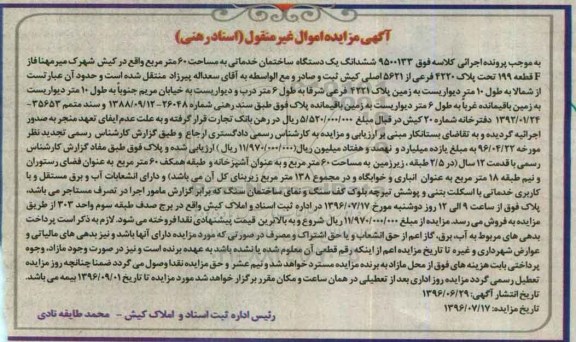 آگهی مزایده اموال غیر منقول (اسناد رهنی)
به موجب پرونده اجرائی کلاسه فوق ۹۵۰۰۱۳۳ ششدانگ یک دستگاه ساختمان خدماتی به مساحت ۶۰ متر مربع واقع در کیش شهرک میر مهنا فاز
F قطعه ۱۹۹ تحت پلاک ۴۲۲۰ فرعی از ۵۶۲۱ اصلی کیش ثبت و صادر و مع الواسطه به آقای سعداله پیرزاد منتقل شده است و حدود آن عبارتست
از شمالا به طول ۱۰ متر دیواریست به زمین پلاک ۴۲۲۱ فرعی شرقا به طول ۶ متر درب و دیواریست به خیابان مریم جنوباً به طول ۱۰ متر دیواریست
به زمین باقیمانده غرباً به طول ۶ متر دیواریست به زمین باقیمانده پلاک فوق طبق سند رهنی شماره ۲۶۰۴۸-۱۳۸۸/۰۹/۱۲ و سند متمم ۳۵۶۵۳-
۱۳۹۲/۰۱/۲۴ دفترخانه شماره ۲۰ کیش در قبال مبلغ ۵/۵۲۰/۰۰۰/۰۰۰ ریال در رهن بانک تجارت قرار گرفته و به علت عدم ایفای تعهد منجر به صدور
اجرائیه گردیده و به تقاضای بستانکار مبنی بر ارزیابی و مزایده به کارشناس رسمی دادگستری ارجاع و طبق گزارش کارشناس رسمی تجدید نظر
مورخه ۹۶/۰۴/۲۲ به مبلغ یازده میلیارد و نهصد و هفتاد میلیون ریال (۱۱/۹۷۰/۰۰۰/۰۰۰ ریال) ارزیابی شده و پلاک فوق طبق مفاد گزارش کارشناس
رسمی با قدمت ۱۲ سال (در ۲/۵ طبقه، زیرزمین به مساحت ۶۰ متر مربع و به عنوان آشپزخانه و طبقه همکف ۶۰ متر مربع به عنوان فضای رستوران
و نیم طبقه ۱۸ متر مربع به عنوان انباری و خوابگاه و در مجموع ۱۳۸ متر مربع زیربنای کل آن می باشد) و دارای انشعابات آب و برق مستقل و با
کاربری خدماتی با اسکلت بتنی و پوشش تیرچه بلوک کف سنگ و نمای ساختمان سنگ که برابر گزارش مامور اجرا در تصرف مستاجر می باشد.
پلاک فوق از ساعت ۹ الی ۱۲ روز دوشنبه مورخ ۱۳۹۶/۰۷/۱۷ در اداره ثبت اسناد و املاک کیش واقع در برج صدف طبقه سوم واحد ۳۰۳ از طریق
مزایده به فروش می رسد. مزایده از مبلغ ۱۱/۹۷۰/۰۰۰/۰۰۰ ریال شروع و به بالاترین قیمت پیشنهادی نقدا فروخته می شود. لازم به ذکر است پرداخت
بدهی های مربوط به آب، برق، گاز اعم از حق انشعاب و یا حق اشتراک و مصرف در صورتی که مورد مزایده دارای آنها باشد و نیز بدهی های مالیاتی و
عوارض شهرداری و غیره تا تاریخ مزایده اعم از اینکه رقم قطعی آن معلوم شده یا نشده باشد به عهده برنده است و نیز در صورت وجود مازاد، وجوه
پرداختی بابت هزینه های فوق از محل مازاد به برنده مزایده مسترد خواهد شد و نیم عشر و حق مزایده نقدا وصول می گردد ضمنا چنانچه روز مزایده
تعطیل رسمی گردد مزایده روز اداری بعد از تعطیلی در همان ساعت و مکان مقرر برگزار خواهد شد مورد مزایده تا تاریخ ۱۳۹۶/۰۹/۰۱ بیمه می باشد.
تاریخ انتشار آگهی: ۱۳۹۶/۰۶/۲۹
تاریخ مزایده: ۱۳۹۶/۰۷/۱۷
رئیس اداره ثبت اسناد و املاک کیش - محمد طایفه نادی